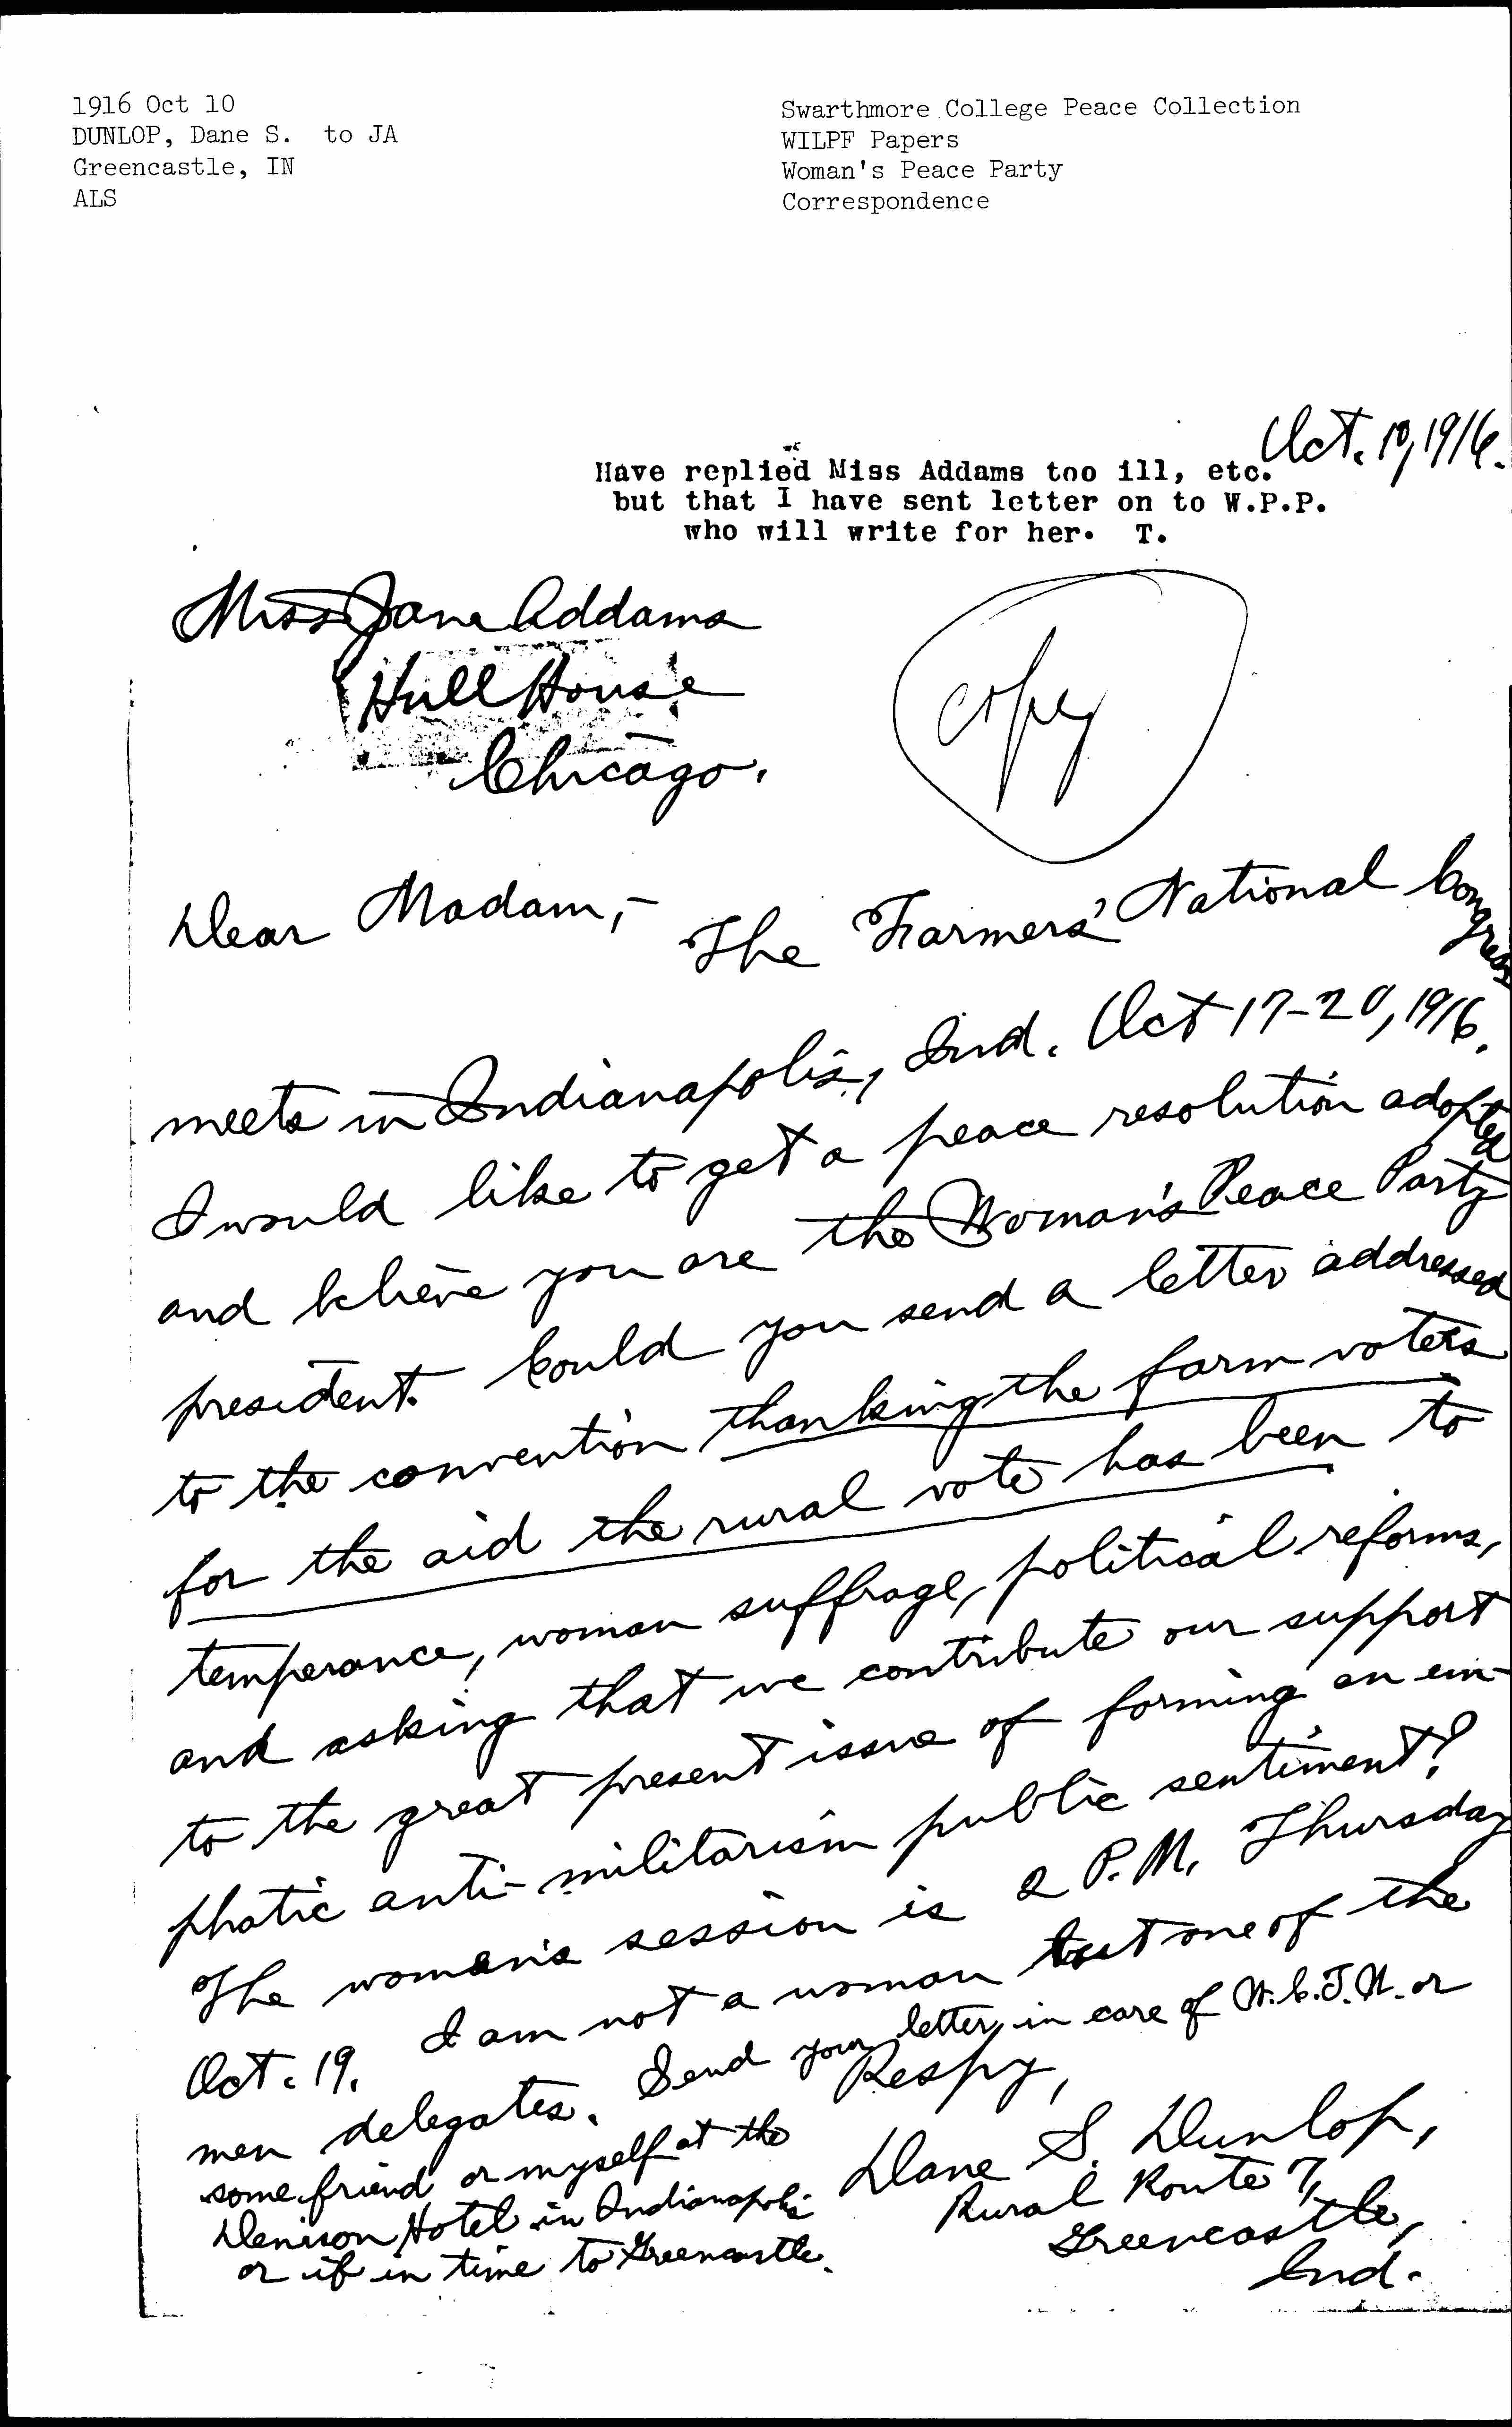 1916 Oct 10
DUNLOP, Dane S. to JA
Greencastle, IN
ALS
Swarthmore College Peace Collection
WILPF Papers
Woman's Peace Party
Correspondence
Oct. 10, 1916.
Have replied Miss Addams too ill, etc.
but that I have sent letter on to W.P.P.
who will write for her. T.
Miss Jane Addams
Hull House
Chicago.
copy
Dear Madam,-
The Farmers' National Congress
meets in Indianapolis, Ind. Oct 17-20, 1916.
I would like to get a peace resolution adopted
and believe you are the Woman's Peace Party
president. Could you send a letter addressed
to the convention thanking the farm voters
for the aid the rural vote has been to
temperance, woman suffrage, political reforms,
and asking that we contribute our support
to the great present issue of forming an em-
phatic anti-militarism public sentiment?
The women's session is 2 P.M. Thursday
Oct. 19. I am not a woman but one of the
men delegates. Send your letter, in care of W.C.T.U. or
some friend or myself at the
Denison Hotel in Indianapolis
or if in time to Greencastle.
Respy,
Dane S. Dunlop,
Rural Route 7,
Greencastle,
Ind.